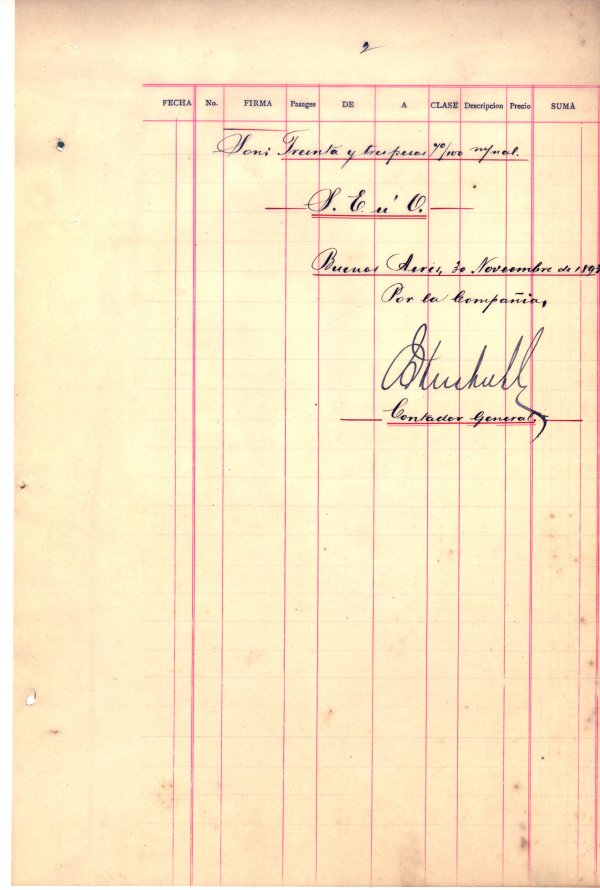 2
FECHA No. FIRMA Pasages DE A CLASE Descripcion Precio SUMA
Son: Treinta y tres pesos 70/100 m/nal.
S. E. ú O.
Buenos Aires, 30 Noviembre de 1893
Por la Compañia,
Contador General.